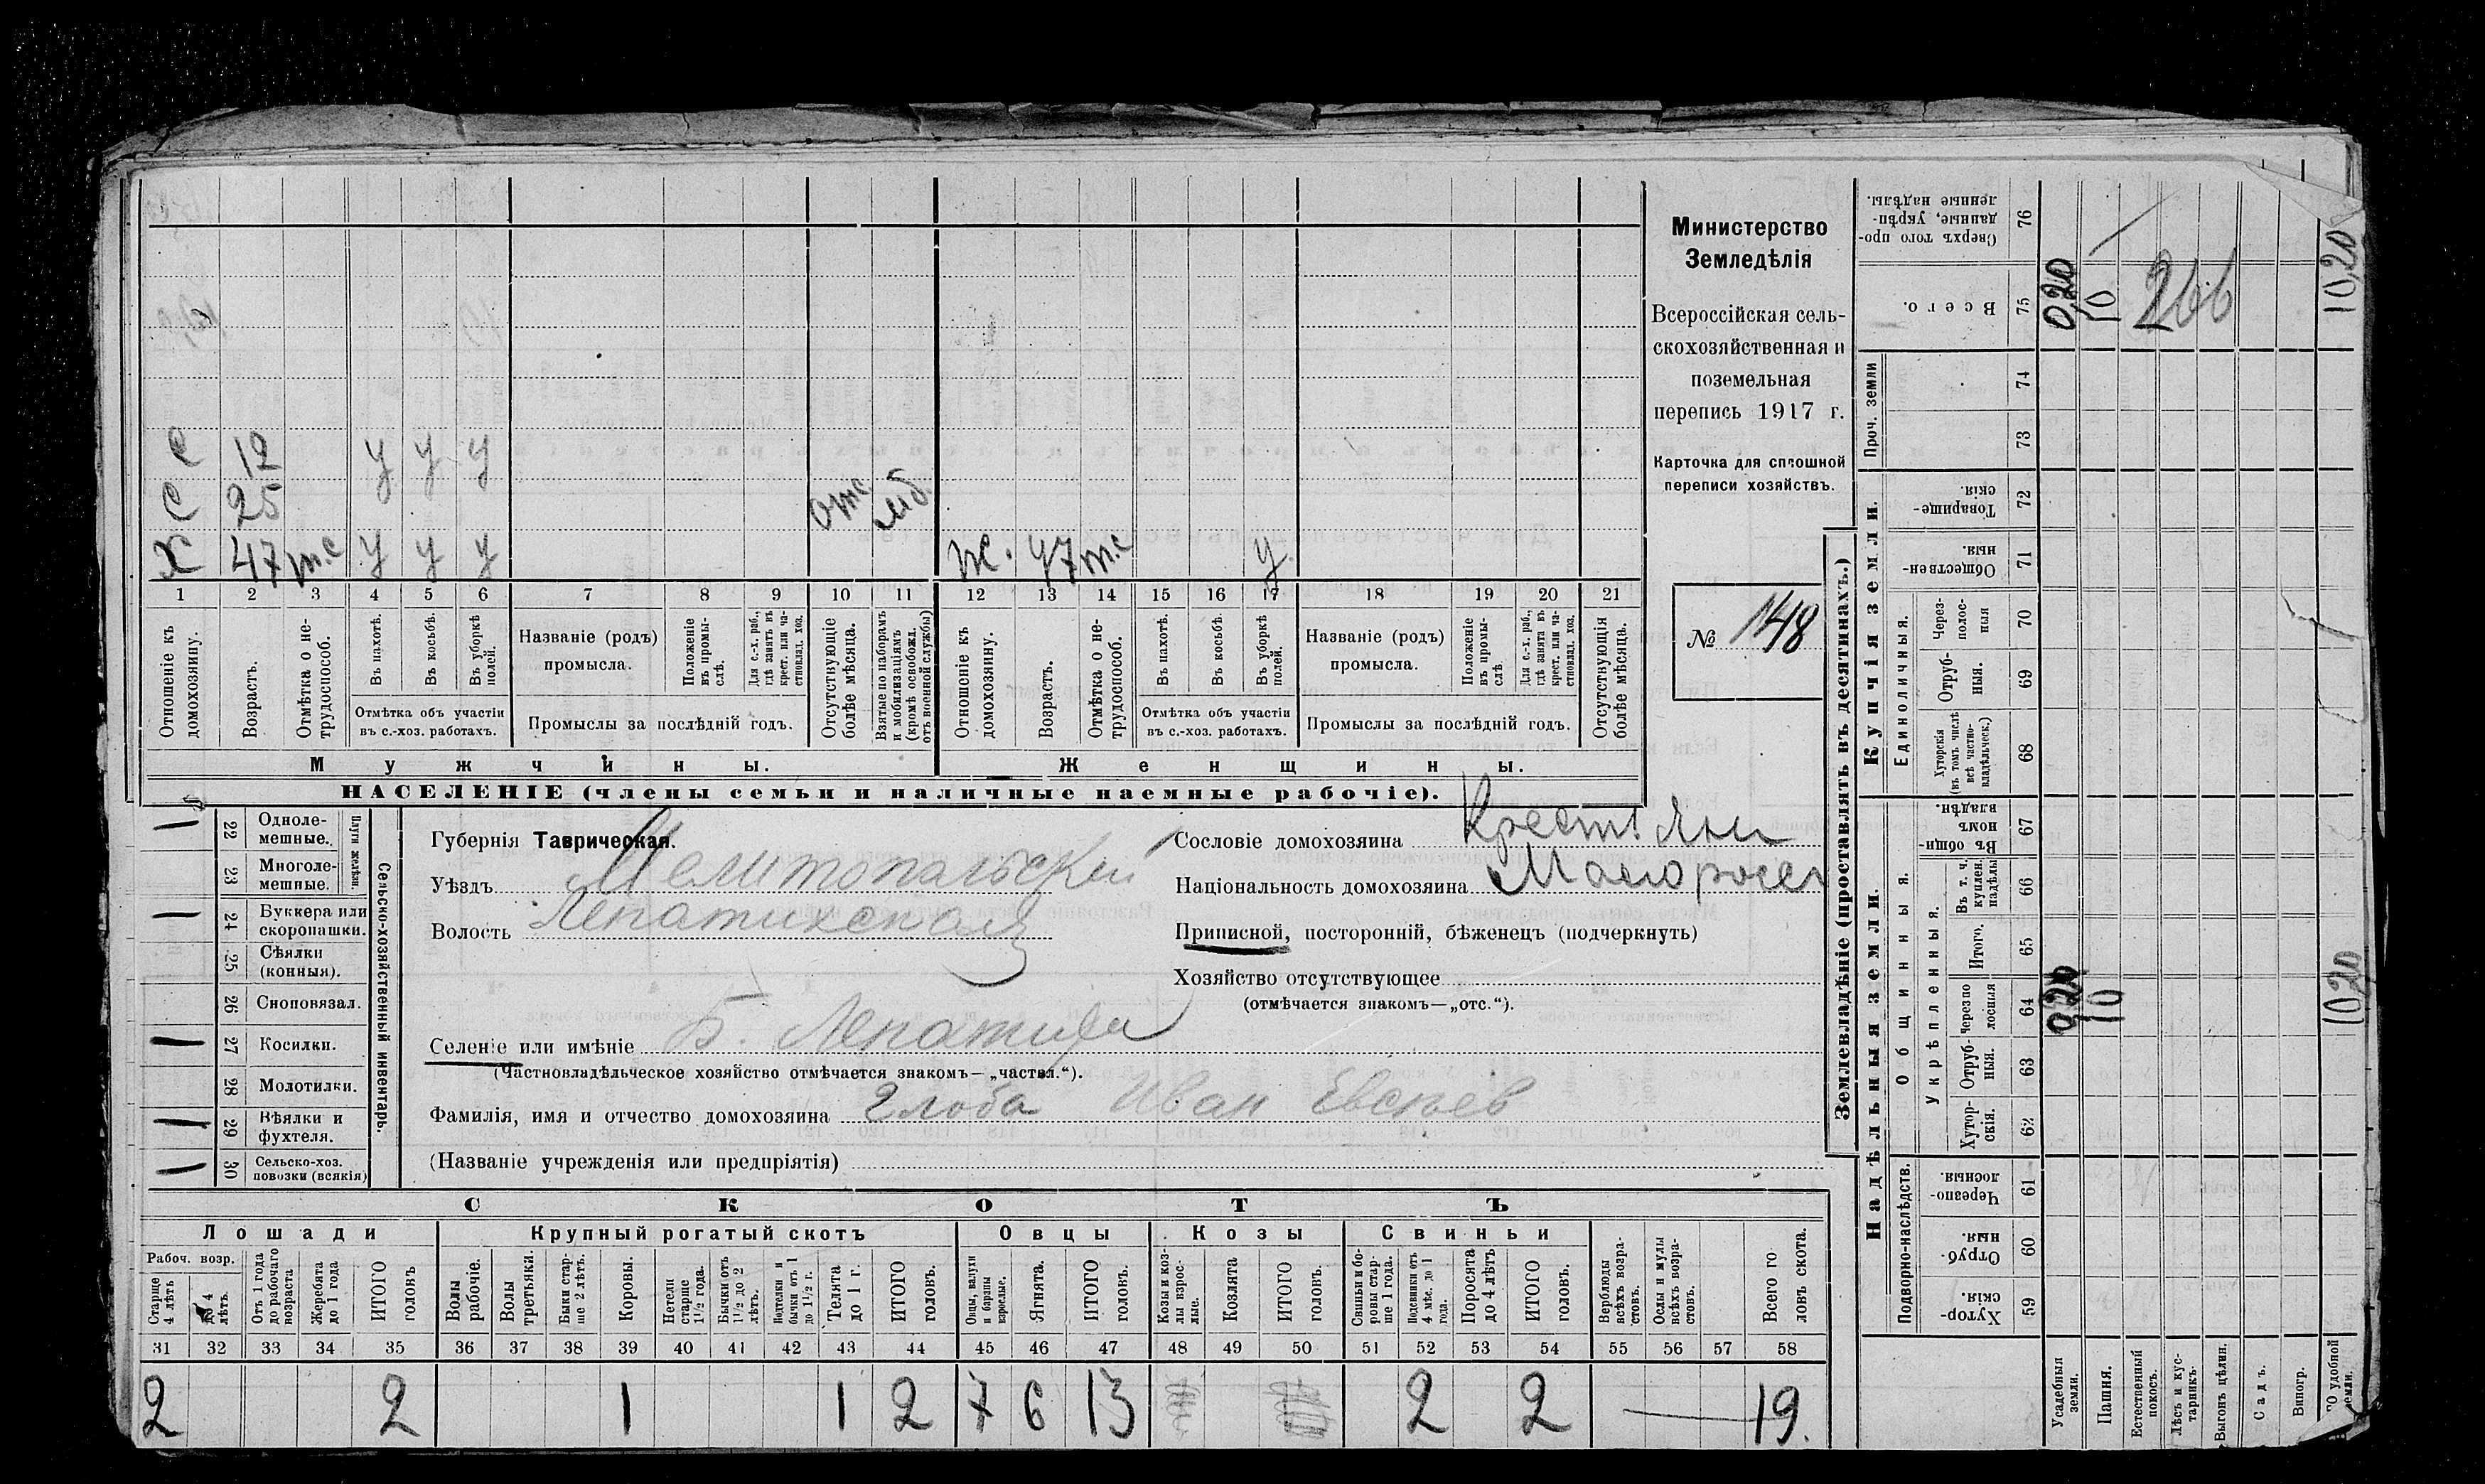 С 12 у у у
С 25 отс. мб.
Х 47 т.с у у у ж. 47 т.с у.
1 2 3 4 5 6 7 8 9 10 11 12 13 14 15 16 17 18 19 20 21
Отношеніе къ домохозяину.
Возрастъ.
Отмѣтка о не-
трудоспособ.
Въ пахотѣ.
Въ косьбѣ.
Въ уборкѣ
полей.
Отмѣтка объ участіи
въ с.-хоз. работахъ.
Названіе (родъ)
промысла.
Положеніе
въ промы-
слѣ.
Для с.-х. раб.,
гдѣ занятъ въ
крест. или ча-
стновлад. хоз.
Промыслы за послѣдній годъ.
Отсутствующіе
болѣе мѣсяца.
Взятые по наборамъ
и мобилизаціямъ
(кромѣ освобожд.
отъ военной службы)
Отношеніе къ
домохозяину.
Возрастъ.
Отмѣтка о не-
трудоспособ.
Въ пахотѣ.
Въ косьбѣ.
Въ уборкѣ
полей.
Отмѣтка объ участіи
въ с.-хоз. работахъ.
Названіе (родъ)
промысла.
Положеніе
въ промы-
слѣ
Для с.-х. раб.,
гдѣ занята въ
крест. или ча-
стновлад. хоз.
Промыслы за послѣдній годъ.
Отсутствующія
болѣе мѣсяца.
Мужчины.
Женщины.
НАСЕЛЕНІЕ (члены семьи и наличные наемные рабочіе).
Министерство
Земледѣлія
Всероссійская сель-
скохозяйственная и
поземельная
перепись 1917 г.
Карточка для сплошной
переписи хозяйствъ.
№ 148
22 Одноле-
мешные.
23 Многоле-
мешные.
Плуги желѣзн.
24 Буккера или
скоропашки.
25 Сѣялки
(конныя).
26 Сноповязал.
27 Косилки.
28 Молотилки.
29 Вѣялки и
фухтеля.
30 Сельско-хоз.
повозки (всякія)
Сельско-хозяйственный инвентарь.
Губернія Таврическая.
Уѣздъ Мелитопольский
Волость Лепатихская
Сословіе домохозяина Крестьянин
Національность домохозяина Малоросс
Приписной, посторонній, бѣженецъ (подчеркнуть)
Хозяйство отсутствующее
(отмѣчается знакомъ—„отс.“).
Селеніе или имѣніе Б. Лепатиха
(Частновладѣльческое хозяйство отмѣчается знакомъ—„частвл.“).
Фамилія, имя и отчество домохозяина Глоба Иван Евсеев
(Названіе учрежденія или предпріятія)
СКОТЪ
Лошади Крупный рогатый скотъ Овцы Козы Свиньи
Рабоч. возр.
Старше
4 лѣтъ
до 4
лѣтъ.
Отъ 1 года
до рабочаго
возраста
Жеребята
до 1 года
ИТОГО
головъ
Волы
рабочіе.
Волы
третьяки.
Быки стар-
ше 2 лѣтъ.
Коровы.
Нетели
старше
1½ года.
Бычки отъ
1½ до 2
лѣтъ.
Подтелки и
бычки отъ 1
до 1½ г.
Телята
до 1 г.
ИТОГО
головъ.
Овцы, валухи
и бараны
взрослые.
Ягнята.
ИТОГО
головъ.
Козы и коз-
лы взрос-
лые.
Козлята
ИТОГО
головъ.
Свиньи и бо-
ровы стар-
ше 1 года.
Подсвинки отъ
4 мѣс. до 1
года.
Поросята
до 4 лѣтъ
ИТОГО
головъ.
Верблюды
всѣхъ возра-
стовъ.
Ослы и мулы
всѣхъ возра-
стовъ.
Всего го
ловъ скота.
31 32 33 34 35 36 37 38 39 40 41 42 43 44 45 46 47 48 49 50 51 52 53 54 55 56 57 58
2 2 1 1 2 7 6 13 2 2 — 19.
Землевладѣніе (проставлять въ десятинахъ.)
Купчія земли.
Надѣльныя земли.
Проч. земли
Единоличныя.
Общинныя.
Укрѣпленныя.
Подворно-наслѣдств.
76 Сверхъ того про-
данные, укрѣп-
ленные надѣлы.
75 Всего. 0,20 10 266 10,20
74
73
72 Товарище-
скія.
71 Обществен-
ныя.
70 Через-
полос-
ныя
69 Отруб-
ныя.
68 Хуторскія
(въ томъ числѣ
всѣ частно-
владѣльческ.)
67 Въ общи-
номъ
владѣн.
66 Въ т. ч.
куплен.
надѣлы
65 Итого.
64 Черезпо
лосныя 0,20 10 10,20
63 Отруб-
ныя.
62 Хутор-
скія.
61 Черезпо-
лосныя.
60 Отруб-
ныя.
59 Хутор-
скія.
Усадебныя
земли.
Пашня.
Естественный
покосъ.
Лѣсъ и кус-
тарникъ.
Выгонъ цѣлин.
Садъ.
Виногр.
удобной
земли.